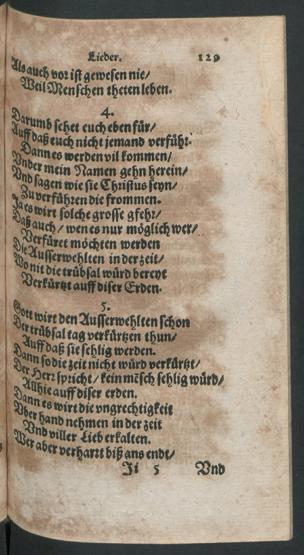 Lieder. 129
Als auch vor ist gewesen nie/
Weil Menschen theten leben.
4.
Darumb sehet euch eben für/
Auff daß euch nicht jemand verführ.
Dann es werden vil kommen/
Vnder mein Namen gehn herein/
Vnd sagen wie sie Christus seyn/
Zu verführen die frommen.
Ja es wirt solche grosse gfehr/
Daß auch/ wen es nur möglich wer/
Verfüret möchten werden
Die Ausserwehlten in der zeit/
Wo nit die trübsal würd bereyt
Verkürtzt auff diser Erden.
5.
Gott wirt den Ausserwehlten schon
Der trübsal tag verkürtzen thun/
Auff daß sie sehlig werden.
Dann so die zeit nicht würd verkürtzt/
Der Herr spricht/ kein mēsch sehlig würd/
Allhie auff diser erden.
Dann es wirt die vngrechtigkeit
Vber hand nehmen in der zeit
Vnd viller Lieb erkalten.
Wer aber verharrt biß ans endt/
Ii 5 Vnd